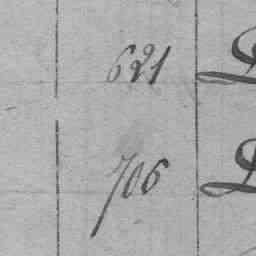 621
706